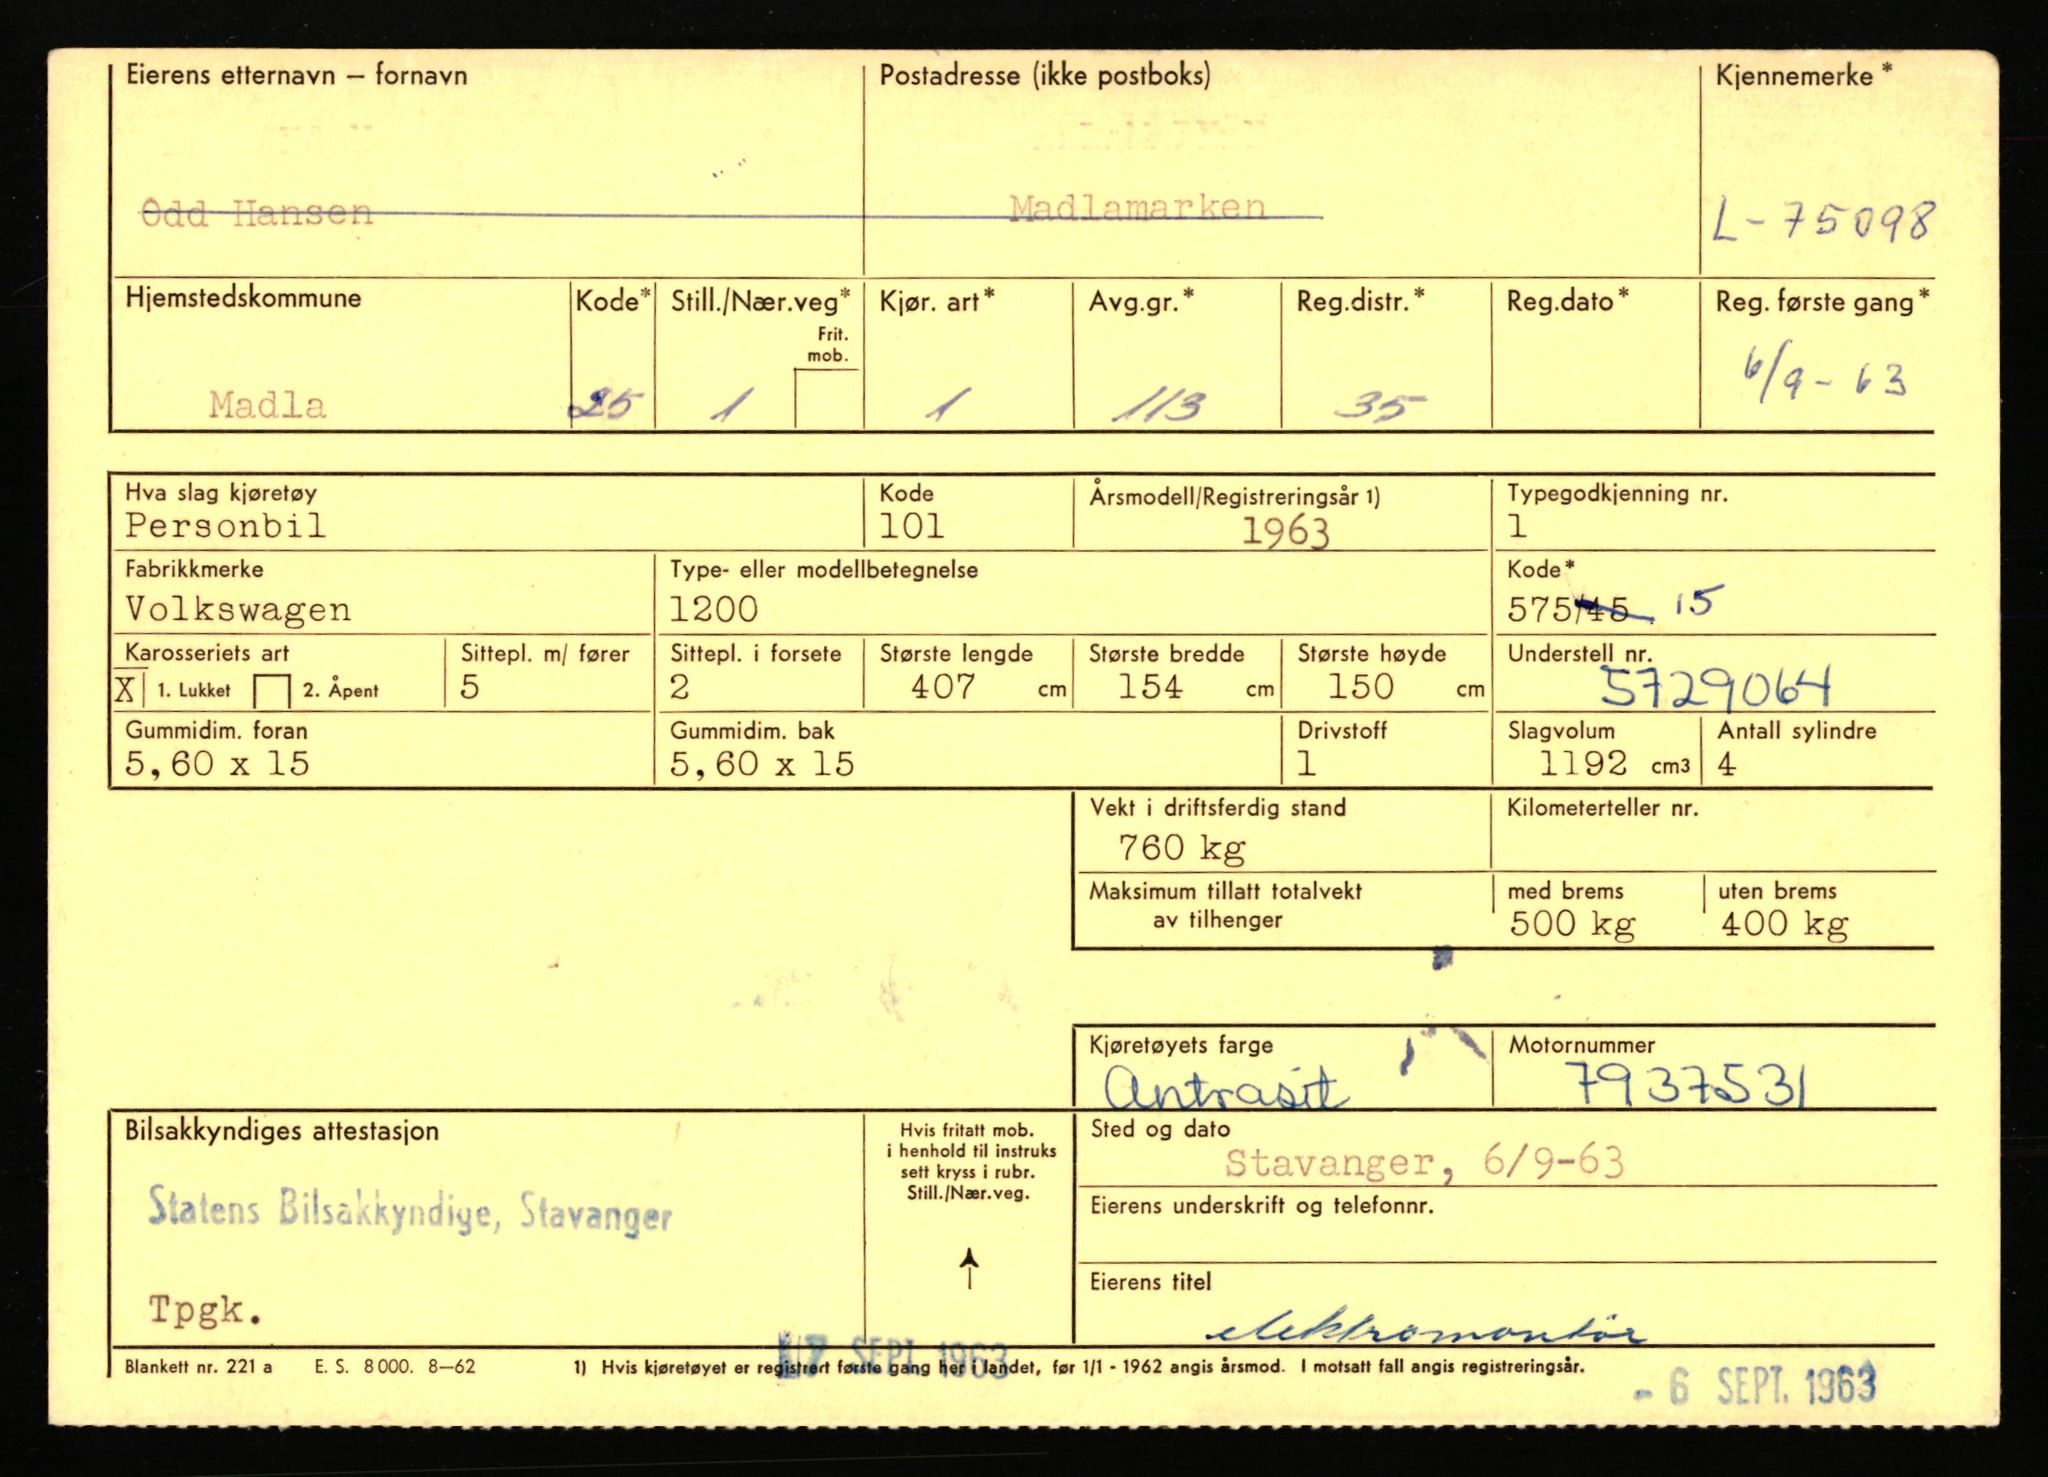 Eierens etternavn – fornavn Postadresse (ikke postboks) Kjennemerke*
Odd Hansen Madlamarken L-75098
Hjemstedskommune Kode* Still./Nær.veg* Kjør. art* Avg.gr.* Reg.distr.* Reg.dato* Reg. første gang*
Frit.
mob.
Madla 25 1 1 113 35 6/9-63
Hva slag kjøretøy Kode Årsmodell/Registreringsår 1) Typegodkjenning nr.
Personbil 101 1963 1
Fabrikkmerke Type- eller modellbetegnelse Kode*
Volkswagen 1200 575/45 15
Karosseriets art Sittepl. m/ fører Sittepl. i forsete Største lengde Største bredde Største høyde Understell nr.
X 1. Lukket 2. Åpent 5 2 407 cm 154 cm 150 cm 5729064
Gummidim. foran Gummidim. bak Drivstoff Slagvolum Antall sylindre
5,60 x 15 5,60 x 15 1 1192 cm3 4
Vekt i driftsferdig stand Kilometerteller nr.
760 kg
Maksimum tillatt totalvekt med brems uten brems
av tilhenger 500 kg 400 kg
Kjøretøyets farge Motornummer
Antrasit 7937531
Bilsakkyndiges attestasjon Hvis fritatt mob. Sted og dato
i henhold til instruks
sett kryss i rubr. Stavanger, 6/9-63
Still./Nær.veg.
Statens Bilsakkyndige, Stavanger Eierens underskrift og telefonnr.
Eierens titel
Tpgk. elektromontör
17 SEPT. 1963
Blankett nr. 221 a E. S. 8000. 8–62 1) Hvis kjøretøyet er registrert første gang her i landet, før 1/1 - 1962 angis årsmod. I motsatt fall angis registreringsår.
- 6 SEPT. 1963